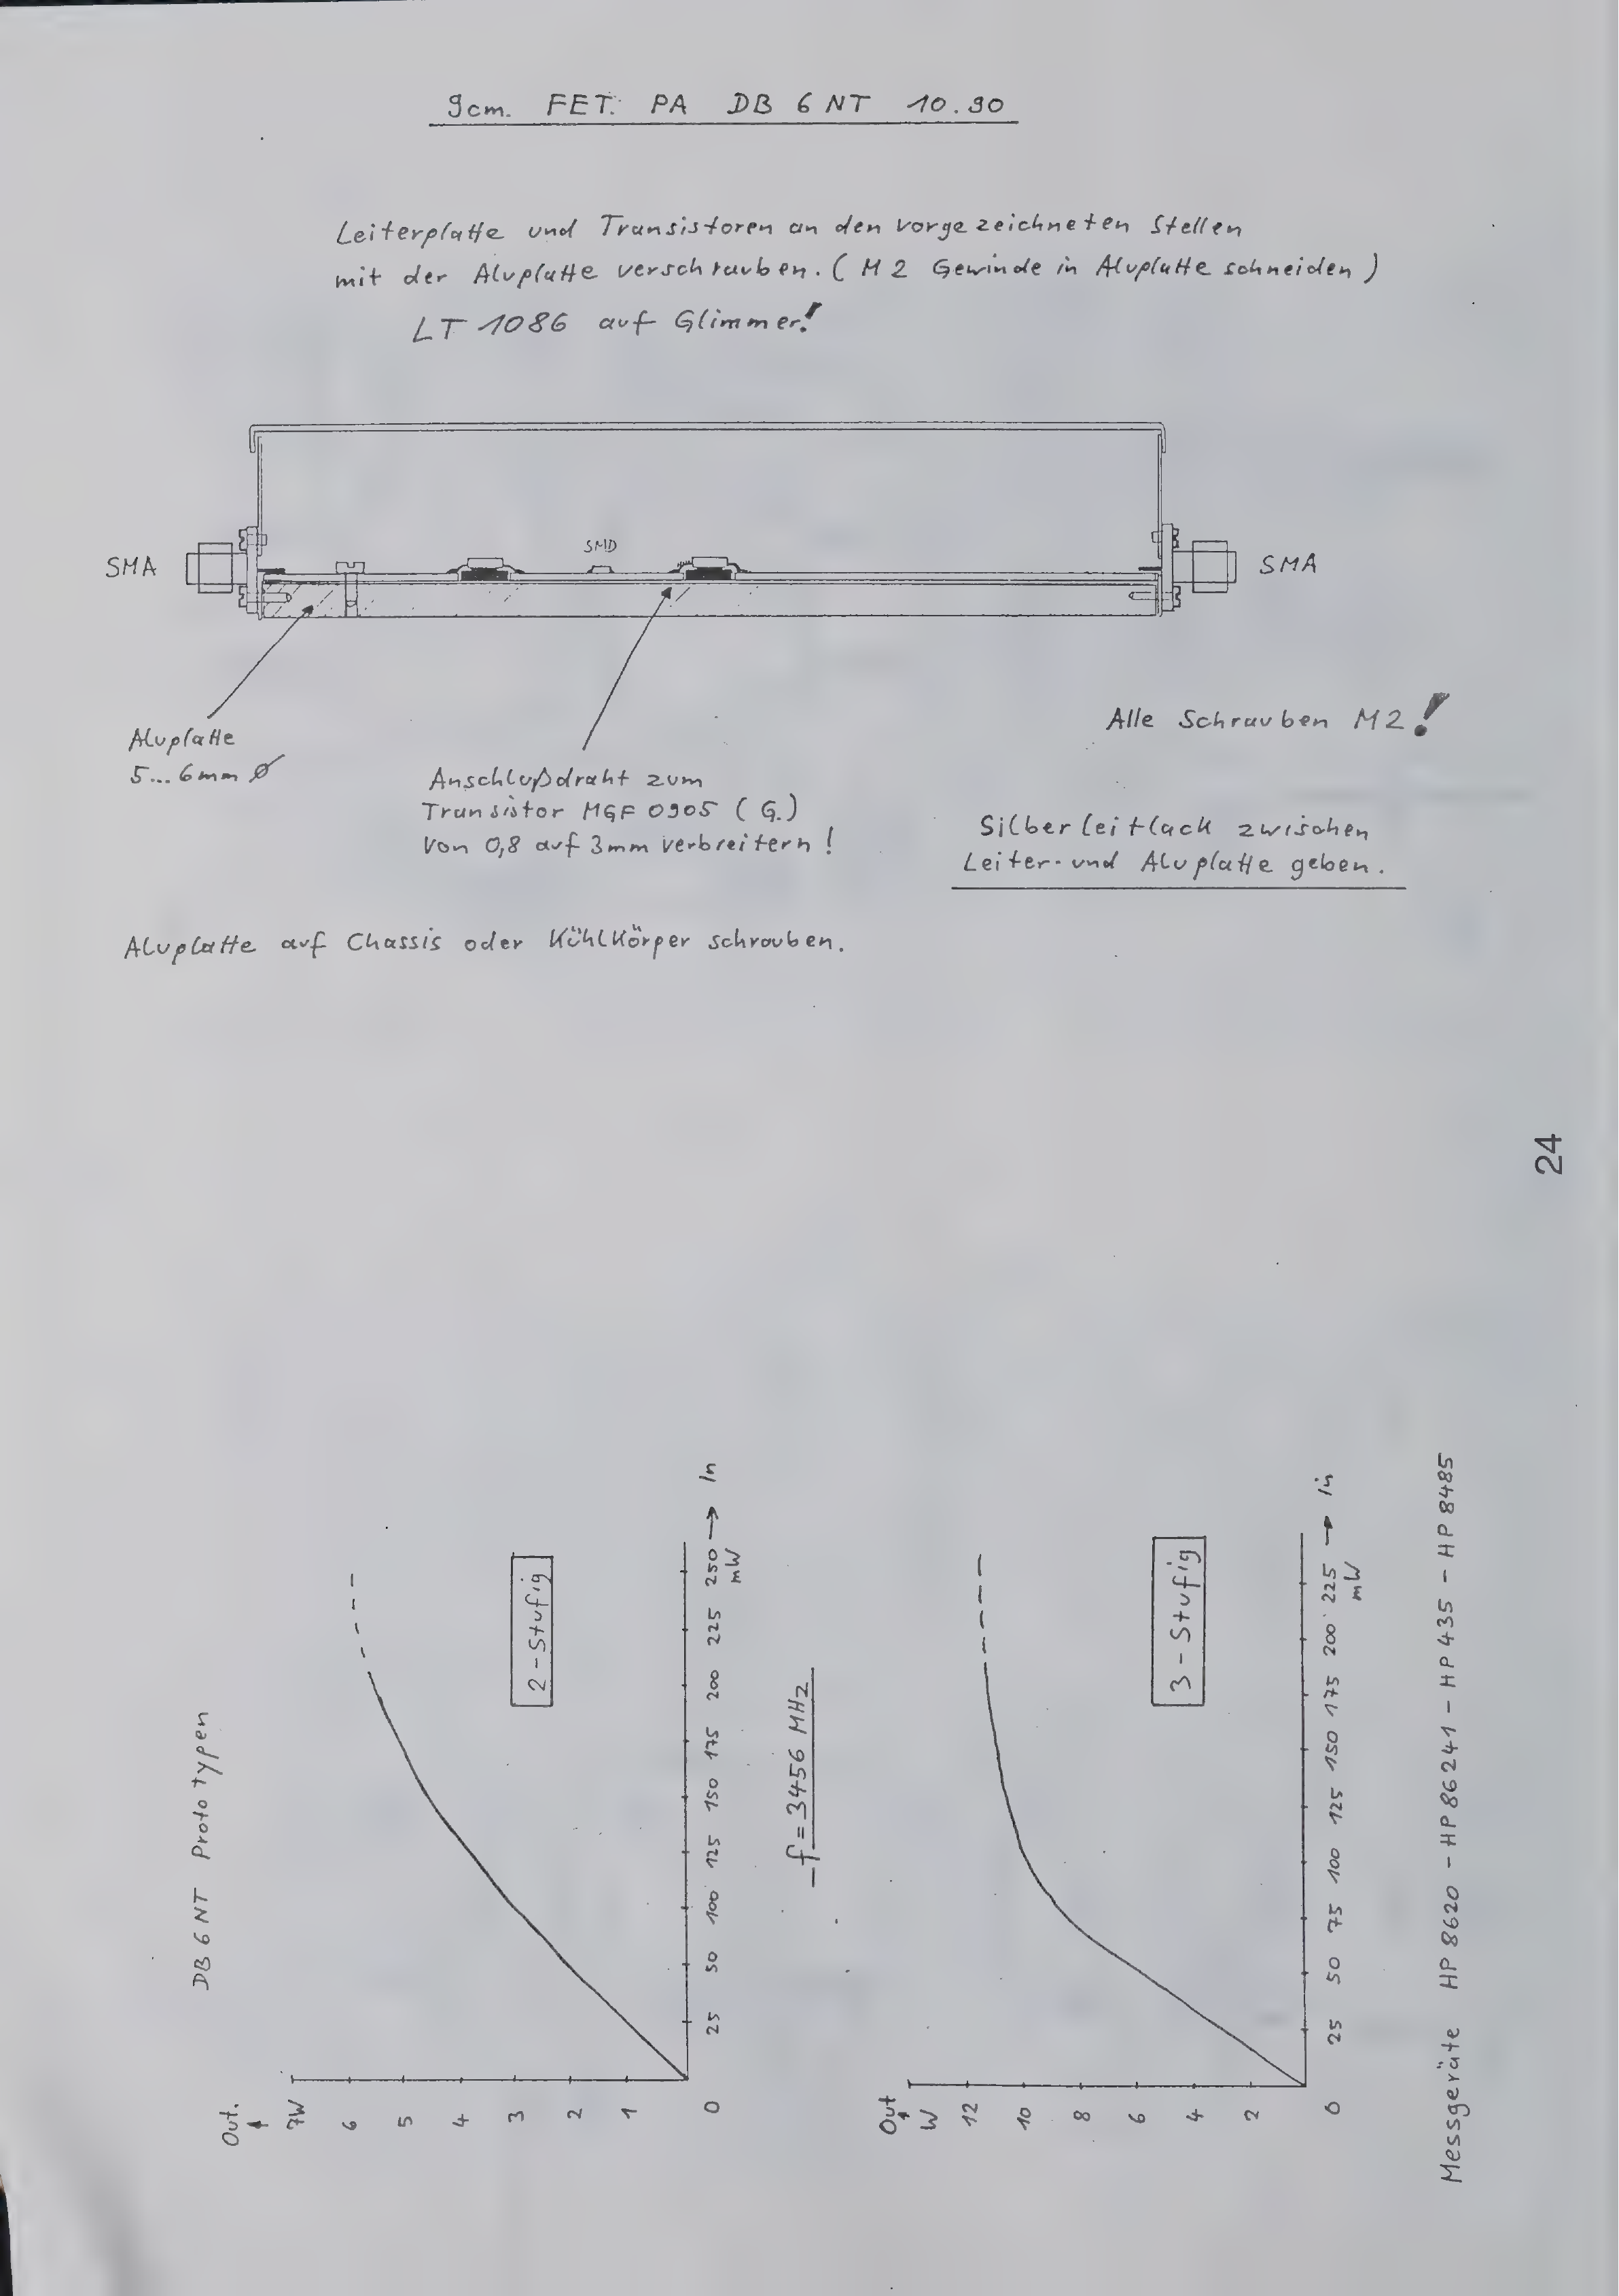 9cm. FET. PA DB 6 NT 10.90
Leiterplatte und Transistoren an den vorgezeichneten Stellen
mit der Aluplatte verschrauben. ( M 2 Gewinde in Aluplatte schneiden )
LT 1086 auf Glimmer!
SMD
SMA
SMA
Aluplatte
5...6mm Ø
Anschlußdraht zum
Transistor MGF 0905 ( G. )
von 0,8 auf 3mm verbreitern !
Alle Schrauben M2!
Silberleitlack zwischen
Leiter- und Aluplatte geben.
Aluplatte auf Chassis oder Kühlkörper schrauben.
24
DB 6 NT Prototypen
Out.
7W
6
5
4
3
2
1
0
25
50
100
125
150
175
200
225
250 → In
mW
2-Stufig
f = 3456 MHz
Out
W
12
10
8
6
4
2
0
25
50
75
100
125
150
175
200
225 → in
mW
3-Stufig
Messgeräte HP 8620 - HP 86241 - HP 435 - HP 8485